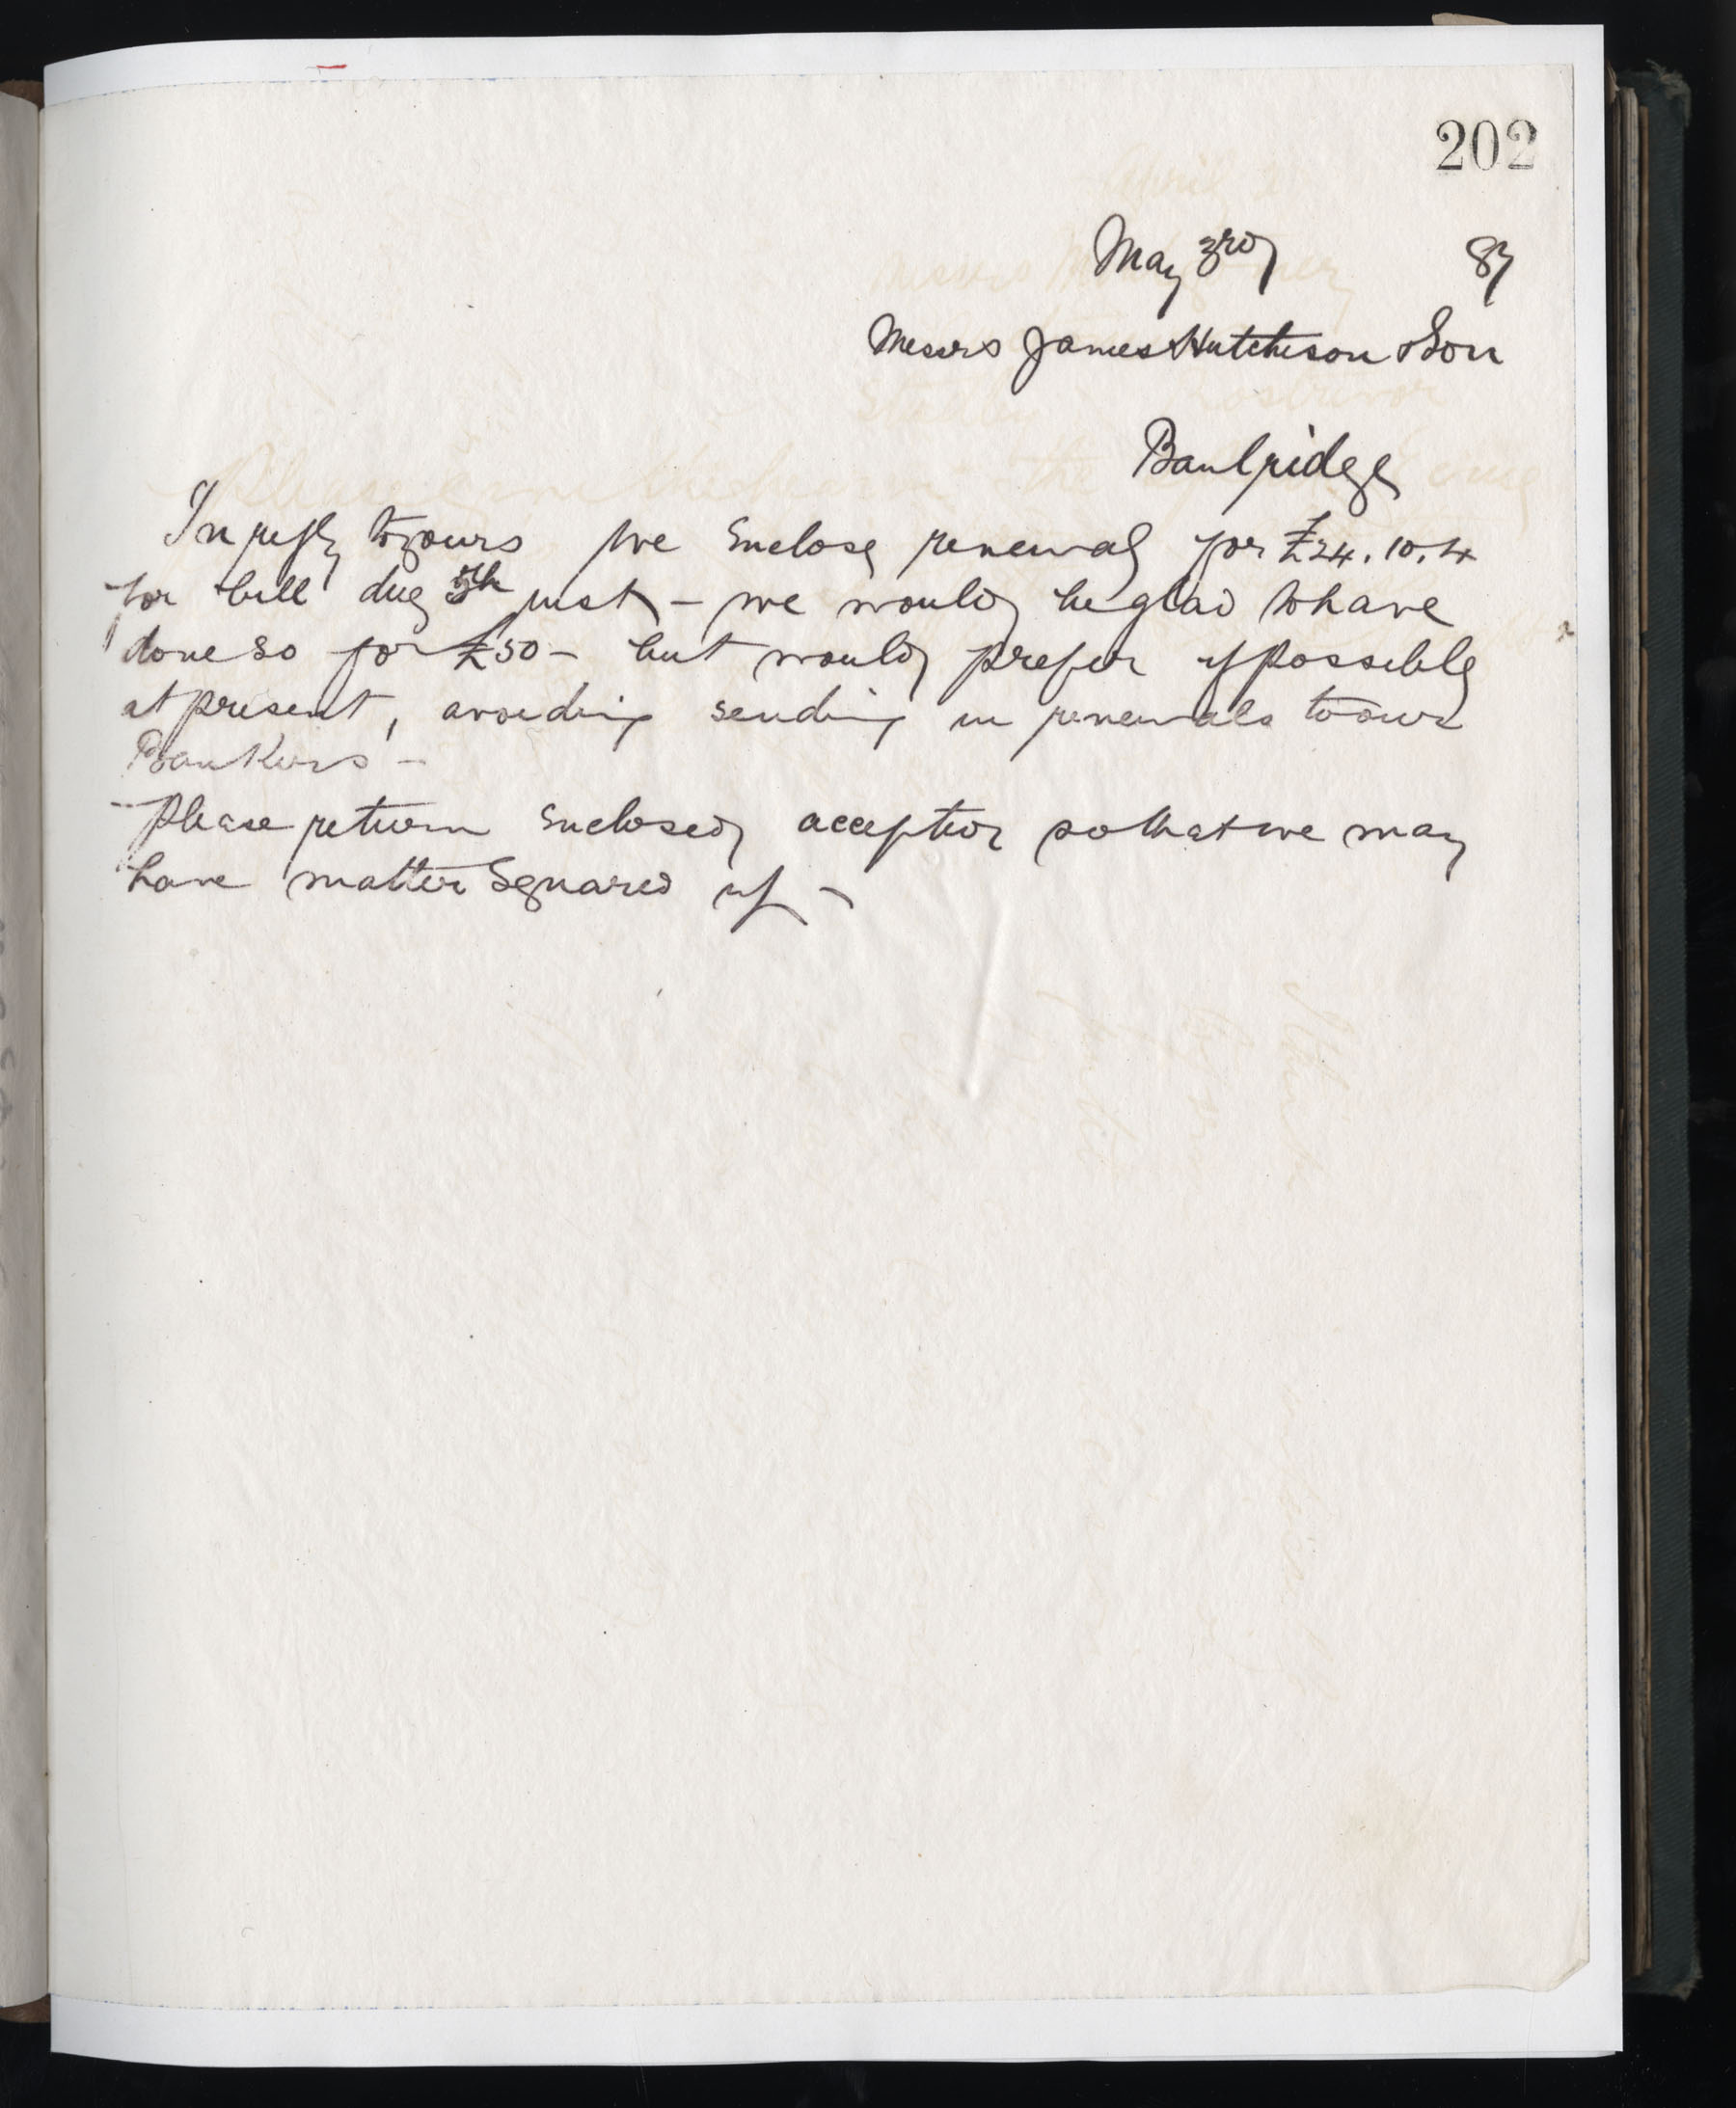 202
May 3rd 87
Messrs James Hutcheson & Son
Banbridge
In reply to yours we enclose renewal for £24.10.4
for bill due 5th inst - we would be glad to have
done so for £50 - but would prefer if possible
at present, avoiding sending in renewals to our
Bankers -
Please return enclosed accepted so that we may
have matter squared up -